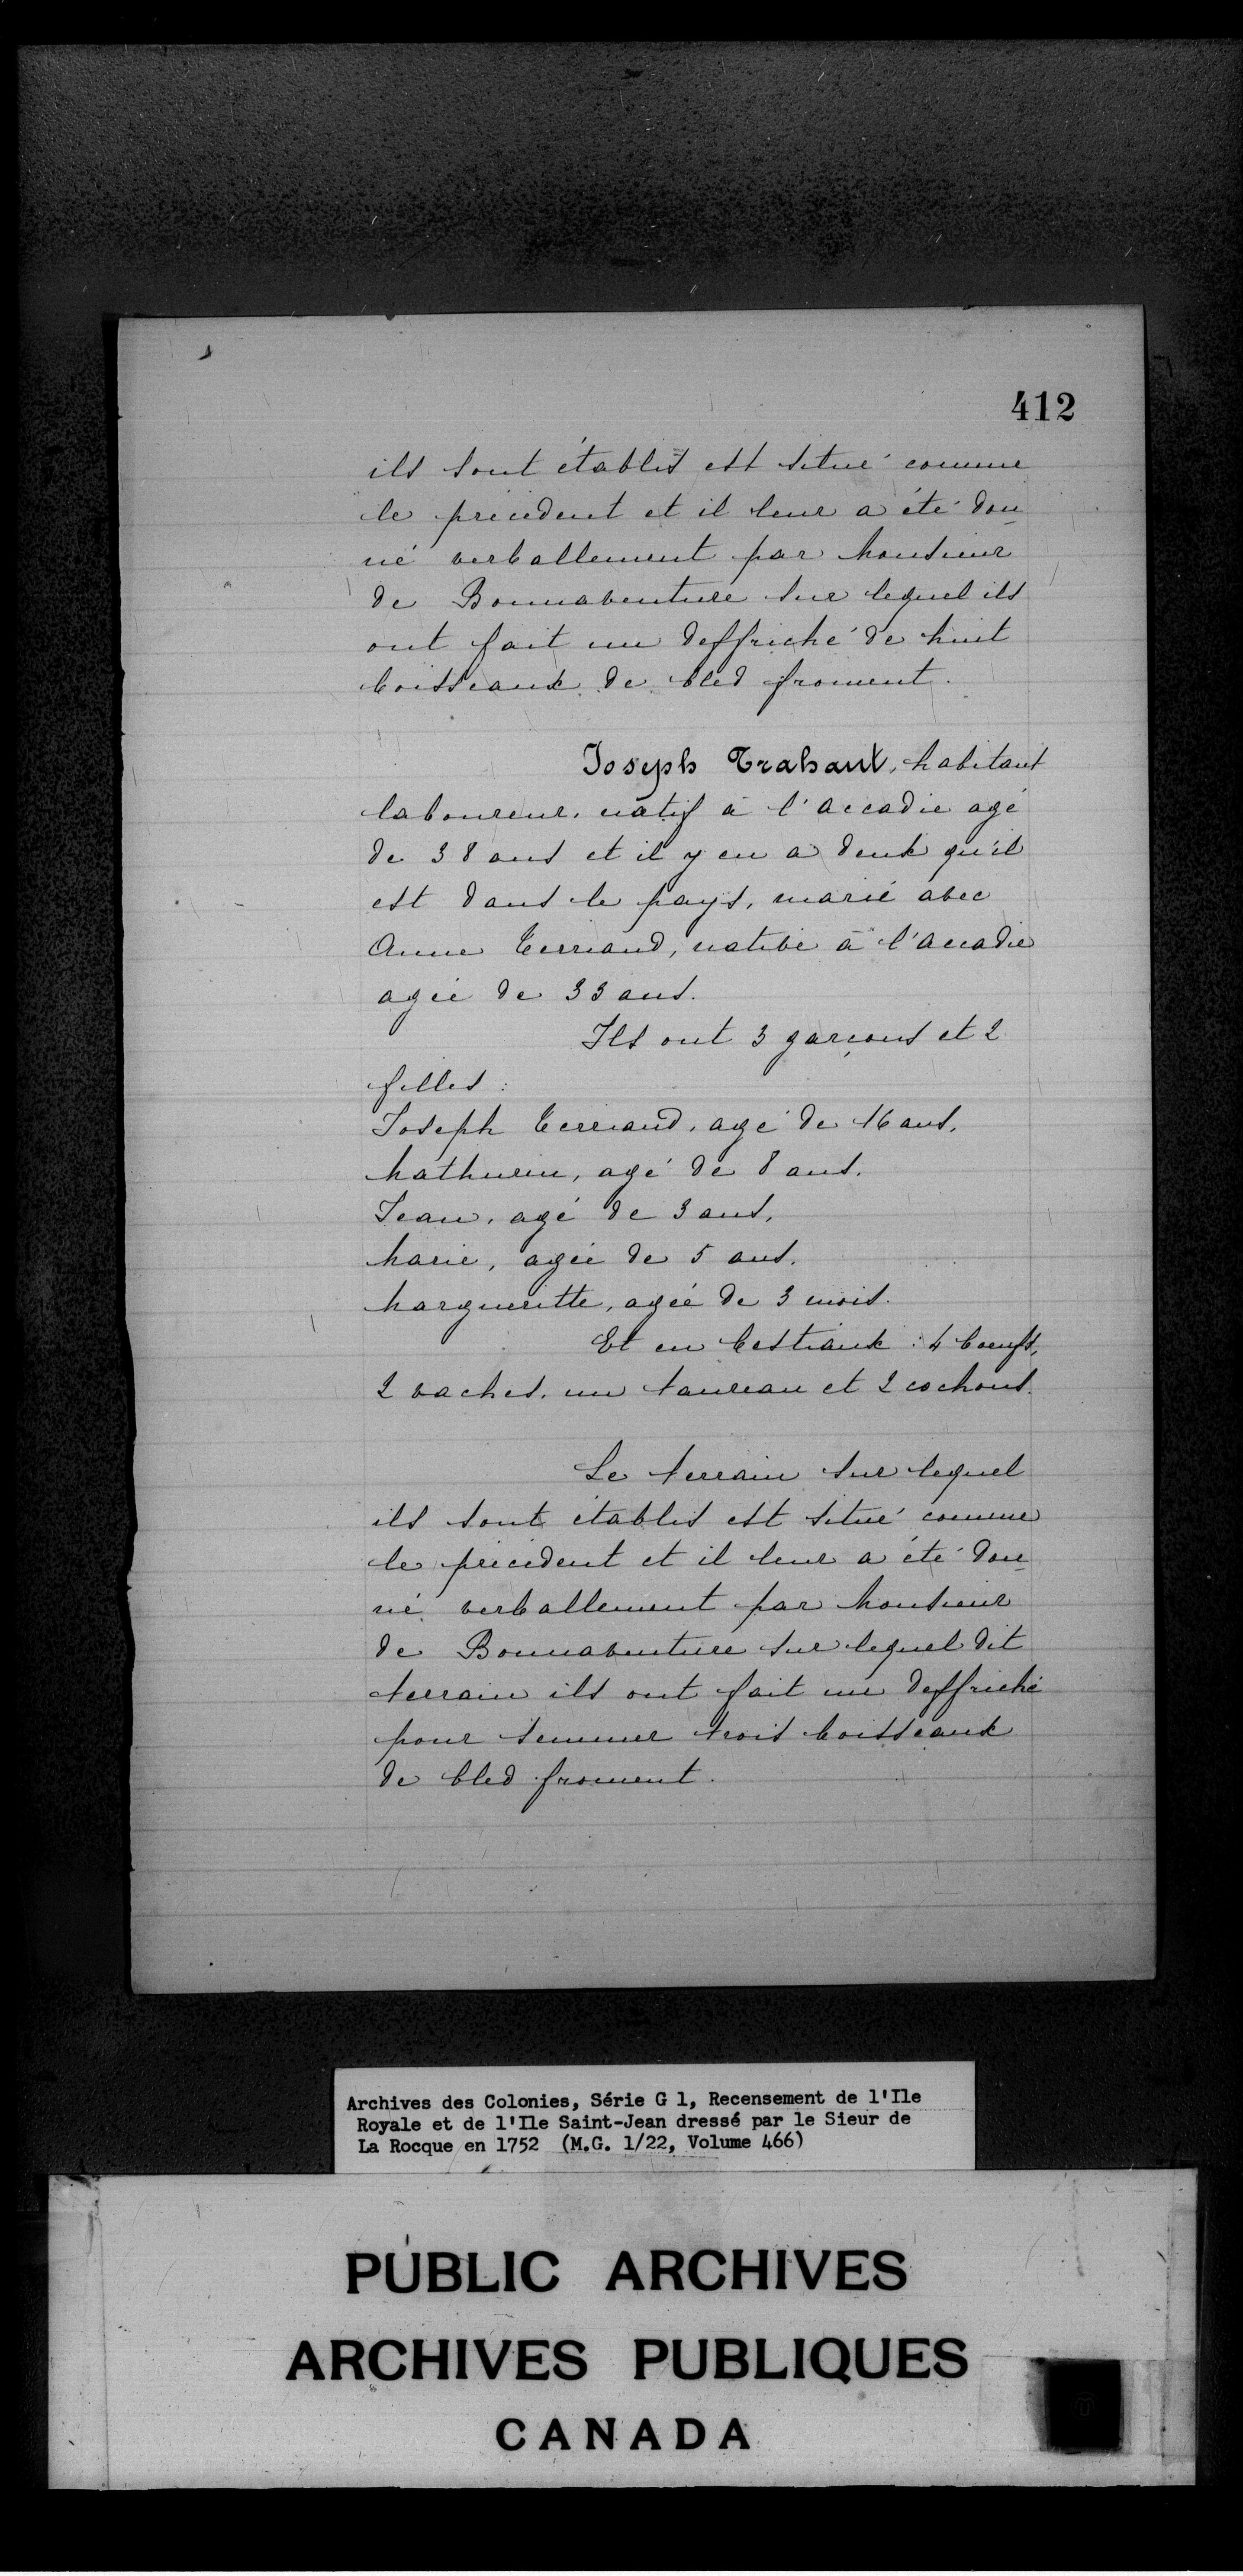 412
ils sont établis est situé comme
le précédent et il leur a été don-
né verballement par Monsieur
de Bonnaventure sur lequel ils
ont fait un deffriché de huit
boisseaux de bled froment.
Joseph Trahant, habitant
laboureur, natif à l'accadie agé
de 38 ans et il y en a deux qu'il
est dans le pays, marié avec
Anne Terriaud, native à l'accadie
agée de 33 ans.
Ils ont 3 garçons et 2
filles :
Joseph Terriaud, agé de 16 ans.
Mathurin, agé de 8 ans.
Jean, agé de 3 ans.
Marie, agée de 5 ans.
Margueritte, agée de 3 mois.
Et en bestiaux : 4 boeufs,
2 vaches, un taureau et 2 cochons.
Le terrain sur lequel
ils sont établis est situé comme
le précédent et il leur a été don-
né verballement par Monsieur
de Bonnaventure sur lequel dit
terrain ils ont fait un deffriché
pour semmer trois boisseaux
de bled froment.
Archives des Colonies, Série G 1, Recensement de l'Ile
Royale et de l'Ile Saint-Jean dressé par le Sieur de
La Rocque en 1752 (M.G. 1/22, Volume 466)
PUBLIC ARCHIVES
ARCHIVES PUBLIQUES
CANADA